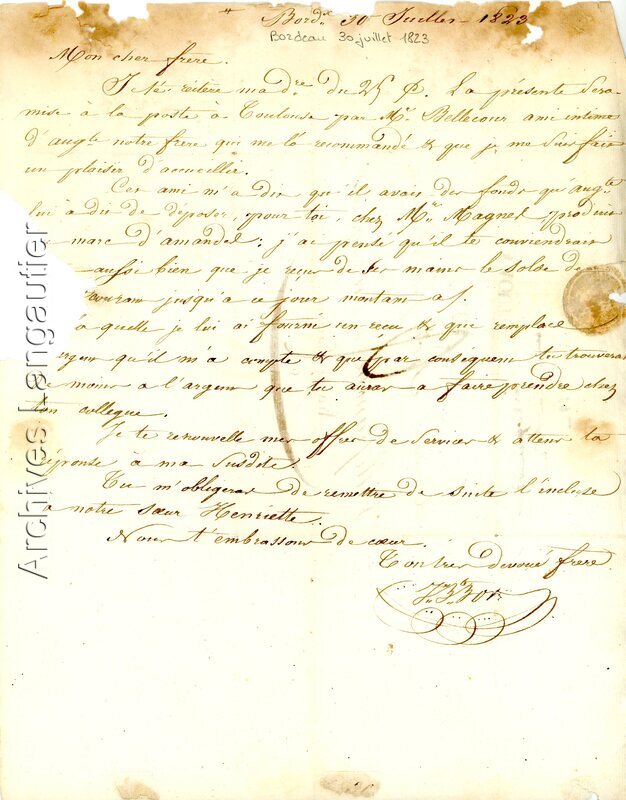 Bord.x 30 Juillet 1823
Bordeau 30 juillet 1823
Mon cher frere.
Je te réitère ma d.re du 25 Ct. La présente sera
mise à la poste à Toulouse par Mr. Bellecour ami intime
d'aug.te notre frere qui me l'a recommandé & que je me suis fait
un plaisir d'accueillir.
Cet ami m'a dit qu'il avait des fonds qu'aug.te
lui a dit de déposer, pour toi, chez Mr. Magnes produit
marc d'amandes; j'ai pensé qu'il te conviendrait
aussi bien que je reçus de ses mains le solde de
courant jusqu'à ce jour montant à f.
à quelle je lui ai fourni un reçu & qui remplace
argent qu'il m'a compté & que par consequent tu trouveras
de moins a l'argent que tu auras a faire prendre chez
ton collegue.
Je te renouvelle mes offres de services & attens ta
réponse à ma susdite.
Tu m'obligeras de remettre de suite l'incluse
a notre sœur Henriette.
Nous t'embrassons de cœur.
Ton tres devoué frere
Archives Langautier